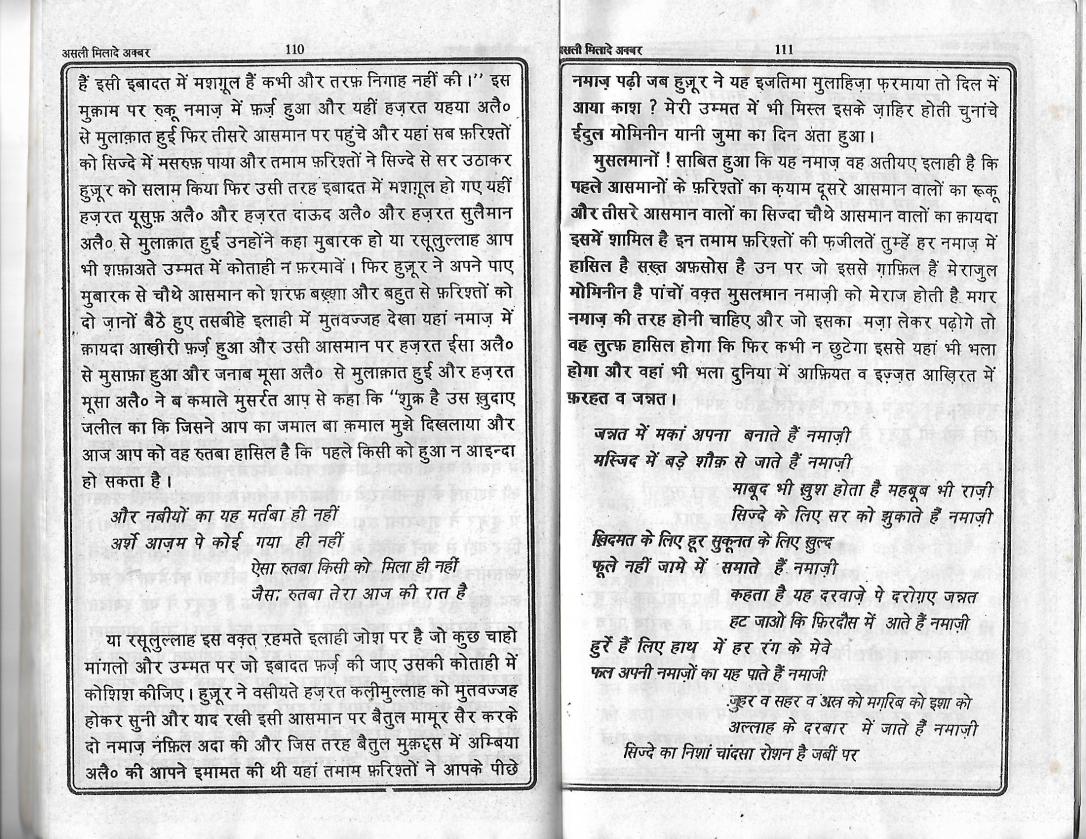 असली मिलादे अक्बर 110
हैं इसी इबादत में मशग़ूल हैं कभी और तरफ़ निगाह नहीं की।” इस
मुक़ाम पर रुकू नमाज़ में फ़र्ज़ हुआ और यहीं हज़रत यहया अलै०
से मुलाक़ात हुई फिर तीसरे आसमान पर पहुंचे और यहां सब फ़रिश्तों
को सिज्दे में मसरुफ़ पाया और तमाम फ़रिश्तों ने सिज्दे से सर उठाकर
हुज़ूर को सलाम किया फिर उसी तरह इबादत में मशग़ूल हो गए यहीं
हज़रत यूसुफ़ अलै० और हज़रत दाऊद अलै० और हज़रत सुलैमान
अलै० से मुलाक़ात हुई उनहोंने कहा मुबारक हो या रसूलुल्लाह आप
भी शफ़ाअते उम्मत में कोताही न फ़रमावें। फिर हुज़ूर ने अपने पाए
मुबारक से चौथे आसमान को शरफ़ बख़्शा और बहुत से फ़रिश्तों को
दो ज़ानों बैठे हुए तसबीहे इलाही में मुतवज्जह देखा यहां नमाज़ में
क़ायदा आख़ीरी फ़र्ज़ हुआ और उसी आसमान पर हज़रत ईसा अलै०
से मुसाफ़ा हुआ और जनाब मूसा अलै० से मुलाक़ात हुई और हज़रत
मूसा अलै० ने ब कमाले मुसर्रत आप से कहा कि “शुक्र है उस ख़ुदाए
जलील का कि जिसने आप का जमाल बा क़माल मुझे दिखलाया और
आज आप को वह रुतबा हासिल है कि पहले किसी को हुआ न आइन्दा
हो सकता है।
और नबीयों का यह मर्तबा ही नहीं
अर्शे आज़म पे कोई गया ही नहीं
ऐसा रुतबा किसी को मिला ही नहीं
जैसा रुतबा तेरा आज की रात है
या रसूलुल्लाह इस वक़्त रहमते इलाही जोश पर है जो कुछ चाहो
मांगलो और उम्मत पर जो इबादत फ़र्ज़ की जाए उसकी कोताही में
कोशिश कीजिए। हुज़ूर ने वसीयते हज़रत कलीमुल्लाह को मुतवज्जह
होकर सुनी और याद रखी इसी आसमान पर बैतुल मामूर सैर करके
दो नमाज़ नफ़िल अदा की और जिस तरह बैतुल मुक़द्दस में अम्बिया
अलै० की आपने इमामत की थी यहां तमाम फ़रिश्तों ने आपके पीछे
असली मिलादे अक्बर 111
नमाज़ पढ़ी जब हुज़ूर ने यह इजतिमा मुलाहिज़ा फ़रमाया तो दिल में
आया काश ? मेरी उम्मत में भी मिस्ल इसके ज़ाहिर होती चुनांचे
ईदुल मोमिनीन यानी जुमा का दिन अंता हुआ।
मुसलमानों ! साबित हुआ कि यह नमाज़ वह अतीयए इलाही है कि
पहले आसमानों के फ़रिश्तों का क़याम दूसरे आसमान वालों का रूकू
और तीसरे आसमान वालों का सिज्दा चौथे आसमान वालों का क़ायदा
इसमें शामिल है इन तमाम फ़रिश्तों की फ़जीलतें तुम्हें हर नमाज़ में
हासिल है सख़्त अफ़सोस है उन पर जो इससे ग़ाफ़िल हैं मेराजुल
मोमिनीन है पांचों वक़्त मुसलमान नमाज़ी को मेराज होती है मगर
नमाज़ की तरह होनी चाहिए और जो इसका मज़ा लेकर पढ़ोगे तो
वह लुत्फ़ हासिल होगा कि फिर कभी न छुटेगा इससे यहां भी भला
होगा और वहां भी भला दुनिया में आफ़ियत व इज़्ज़त आख़िरत में
फ़रहत व जन्नत।
जन्नत में मकां अपना बनाते हैं नमाज़ी
मस्जिद में बड़े शौक़ से जाते हैं नमाज़ी
माबूद भी ख़ुश होता है महबूब भी राज़ी
सिज्दे के लिए सर को झुकाते हैं नमाज़ी
ख़िदमत के लिए हूर सुकूनत के लिए ख़ुल्द
फूले नहीं जामे में समाते हैं नमाज़ी
कहता है यह दरवाज़े पे दरोग़ए जन्नत
हट जाओ कि फ़िरदौस में आते हैं नमाज़ी
हुरें हैं लिए हाथ में हर रंग के मेवे
फल अपनी नमाज़ों का यह पाते हैं नमाज़ी
जुहर व सहर व अस्र को मग़रिब को इशा को
अल्लाह के दरबार में जाते हैं नमाज़ी
सिज्दे का निशां चांदसा रोशन है जबीं पर